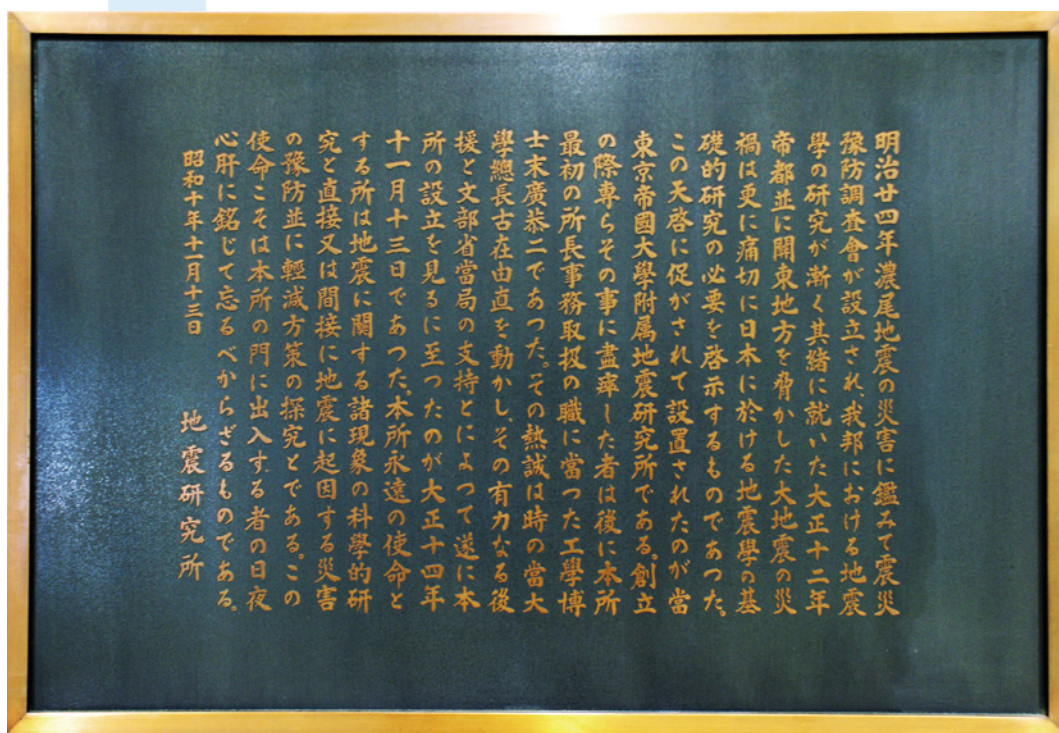 明治廿四年濃尾地震の災害に鑑みて震災
豫防調査會が設立され、我邦における地震
學の研究が漸く其緒に就いた大正十二年
帝都並に關東地方を脅かした大地震の災
禍は更に痛切に日本に於ける地震學の基
礎的研究の必要を啓示するものであつた。
この天啓に促がされて設置されたのが當
東京帝國大學附属地震研究所である。創立
の際専らその事に盡瘁した者は後に本所
最初の所長事務取扱の職に當つた工學博
士末廣恭二であつた。その熱誠は時の當大
學總長古在由直を動かし、その有力なる後
援と文部省當局の支持とによつて遂に本
所の設立を見るに至つたのが大正十四年
十一月十三日であつた。本所永遠の使命と
する所は地震に關する諸現象の科學的研
究と直接又は間接に地震に起因する災害
の豫防並に輕減方策の探究とである。この
使命こそは本所の門に出入する者の日夜
心肝に銘じて忘るべからざるものである。
昭和十年十一月十三日
地震研究所